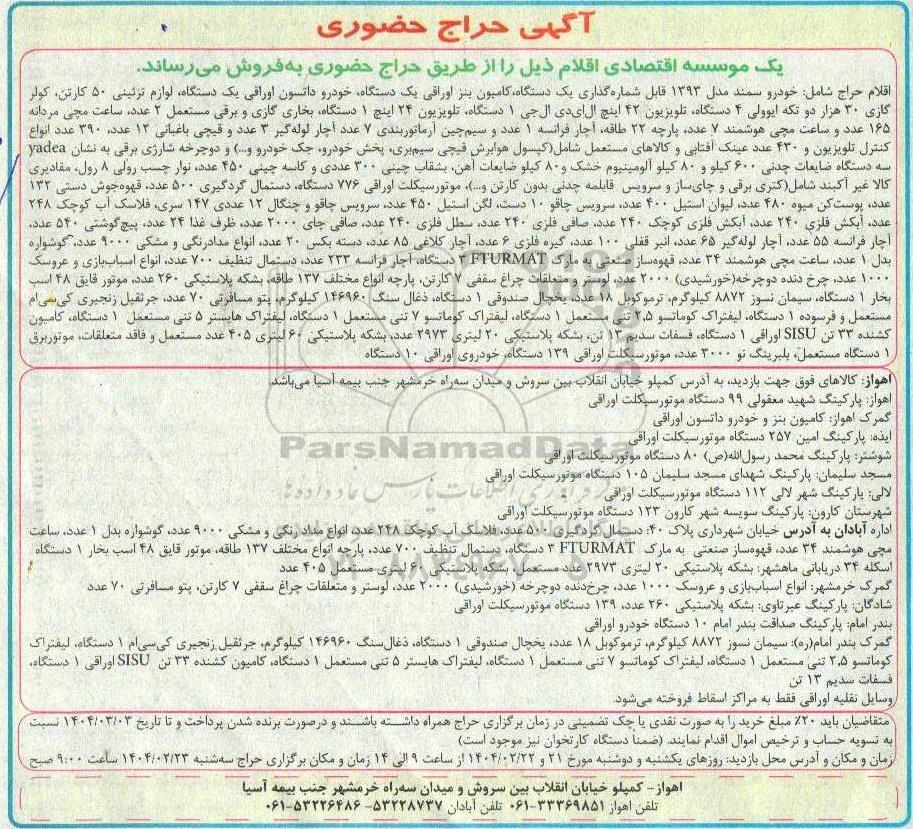 آگهی حراج حضوری
یک موسسه اقتصادی اقلام ذیل را از طریق حراج حضوری به‌فروش می‌رساند.
اقلام حراج شامل: خودرو سمند مدل ۱۳۹۳ قابل شماره‌گذاری یک دستگاه،کامیون بنز اوراقی یک دستگاه، خودرو داتسون اوراقی یک دستگاه، لوازم تزئینی ۵۰ کارتن، کولر
گازی ۳۰ هزار دو تکه ایوولی ۴ دستگاه، تلویزیون ۴۲ اینچ ال‌ای‌دی ال‌جی ۱ دستگاه، تلویزیون ۲۴ اینچ ۱ دستگاه، بخاری گازی و برقی مستعمل ۲ عدد، ساعت مچی مردانه
۱۶۵ عدد و ساعت مچی هوشمند ۷ عدد، پارچه ۲۲ طاقه، آچار فرانسه ۱ عدد و سیم‌چین آرماتوربندی ۷ عدد آچار لوله‌گیر ۳ عدد و قیچی باغبانی ۱۲ عدد، ۳۹۰ عدد انواع
کنترل تلویزیون و ۴۳۰ عدد عینک آفتابی و کالاهای مستعمل شامل(کپسول هوابرش قیچی سیم‌بری، پخش خودرو، جک خودرو و...) و دوچرخه شارژی برقی به نشان yadea
سه دستگاه ضایعات چدنی ۶۰۰ کیلو و ۸۰ کیلو آلومینیوم خشک و ۸۰ کیلو ضایعات آهن، بشقاب چینی ۳۰۰ عددی و کاسه چینی ۴۵۰ عدد، نوار چسب رولی ۸ رول، مقادیری
کالا غیر آکبند شامل(کتری برقی و چای‌ساز و سرویس قابلمه چدنی بدون کارتن و...)، موتورسیکلت اوراقی ۷۷۶ دستگاه، دستمال گردگیری ۵۰۰ عدد، قهوه‌جوش دستی ۱۳۲
عدد، پوست‌کن میوه ۴۸۰ عدد، لیوان استیل ۴۰۰ عدد، سرویس چاقو ۱۰ دست، لگن استیل ۴۵۰ عدد، سرویس چاقو و چنگال ۱۲ عددی ۱۴۷ سری، فلاسک آب کوچک ۲۴۸
عدد، آبکش فلزی ۲۴۰ عدد، آبکش فلزی کوچک ۲۴۰ عدد، صافی فلزی ۲۴۰ عدد، سطل فلزی ۲۴۰ عدد، صافی چای ۲۰۰۰ عدد، ظرف غذا ۲۴ عدد، پیچ‌گوشتی ۵۴۰ عدد،
آچار فرانسه ۵۵ عدد، آچار لوله‌گیر ۶۵ عدد، انبر قفلی ۱۰۰ عدد، گیره فلزی ۶ عدد، آچار کلاغی ۸۵ عدد، دسته بکس ۲۰ عدد، انواع مدادرنگی و مشکی ۹۰۰۰ عدد، گوشواره
بدل ۱ عدد، ساعت مچی هوشمند ۳۴ عدد، قهوه‌ساز صنعتی به مارک FTURMAT ۳ دستگاه، آچار فرانسه ۲۳۳ عدد، دستمال تنظیف ۷۰۰ عدد، انواع اسباب‌بازی و عروسک
۱۰۰۰ عدد، چرخ دنده دوچرخه(خورشیدی) ۲۰۰۰ عدد، لوستر و متعلقات چراغ سقفی ۷ کارتن، پارچه انواع مختلف ۱۳۷ طاقه، بشکه پلاستیکی ۲۶۰ عدد، موتور قایق ۴۸ اسب
بخار ۱ دستگاه، سیمان نسوز ۸۸۷۲ کیلوگرم، ترموکوبل ۱۸ عدد، یخچال صندوقی ۱ دستگاه، ذغال سنگ ۱۴۶۹۶۰ کیلوگرم، پتو مسافرتی ۷۰ عدد، جرثقیل زنجیری کی‌سی‌ام
مستعمل و فرسوده ۱ دستگاه، لیفتراک کوماتسو ۲,۵ تنی مستعمل ۱ دستگاه، لیفتراک کوماتسو ۷ تنی مستعمل ۱ دستگاه، لیفتراک هایستر ۵ تنی مستعمل ۱ دستگاه، کامیون
کشنده ۳۳ تن SISU اوراقی ۱ دستگاه، فسفات سدیم ۱۳ تن، بشکه پلاستیکی ۲۰ لیتری ۲۹۷۳ عدد، بشکه پلاستیکی ۶۰ لیتری ۴۰۵ عدد مستعمل و فاقد متعلقات، موتوربرق
۱ دستگاه مستعمل، بلبرینگ نو ۳۰۰۰ عدد، موتورسیکلت اوراقی ۱۳۹ دستگاه، خودروی اوراقی ۱۰ دستگاه
اهواز: کالاهای فوق جهت بازدید، به آدرس کمپلو خیابان انقلاب بین سروش و میدان سه‌راه خرمشهر جنب بیمه آسیا می‌باشد.
اهواز: پارکینگ شهید معقولی ۹۹ دستگاه موتورسیکلت اوراقی
گمرک اهواز: کامیون بنز و خودرو داتسون اوراقی
ایذه: پارکینگ امین ۲۵۷ دستگاه موتورسیکلت اوراقی
شوشتر: پارکینگ محمد رسول‌الله(ص) ۸۰ دستگاه موتورسیکلت اوراقی
مسجد سلیمان: پارکینگ شهدای مسجد سلیمان ۱۰۵ دستگاه موتورسیکلت اوراقی
لالی: پارکینگ شهر لالی ۱۱۲ دستگاه موتورسیکلت اوراقی
شهرستان کارون: پارکینگ سویسه شهر کارون ۱۲۳ دستگاه موتورسیکلت اوراقی
اداره آبادان به آدرس خیابان شهرداری پلاک ۴۰: دستمال گردگیری ۵۰۰ عدد، فلاسک آب کوچک ۲۴۸ عدد انواع مداد رنگی و مشکی ۹۰۰۰ عدد، گوشواره بدل ۱ عدد، ساعت
مچی هوشمند ۳۴ عدد، قهوه‌ساز صنعتی به مارک FTURMAT ۳ دستگاه، دستمال تنظیف ۷۰۰ عدد، پارچه انواع مختلف ۱۳۷ طاقه، موتور قایق ۴۸ اسب بخار ۱ دستگاه
اسکله ۳۴ دریابانی ماهشهر: بشکه پلاستیکی ۲۰ لیتری ۲۹۷۳ عدد مستعمل بشکه پلاستیکی ۶۰ لیتری مستعمل ۴۰۵ عدد
گمرک خرمشهر: انواع اسباب‌بازی و عروسک ۱۰۰۰ عدد، چرخ‌دنده دوچرخه (خورشیدی) ۲۰۰۰ عدد، لوستر و متعلقات چراغ سقفی ۷ کارتن، پتو مسافرتی ۷۰ عدد
شادگان: پارکینگ عبرتاوی: بشکه پلاستیکی ۲۶۰ عدد، ۱۳۹ دستگاه موتورسیکلت اوراقی
بندر امام: پارکینگ صداقت بندر امام ۱۰ دستگاه خودرو اوراقی
گمرک بندر امام(ره): سیمان نسوز ۸۸۷۲ کیلوگرم، ترموکوبل ۱۸ عدد، یخچال صندوقی ۱ دستگاه، ذغال‌سنگ ۱۴۶۹۶۰ کیلوگرم، جرثقیل زنجیری کی‌سی‌ام ۱ دستگاه، لیفتراک
کوماتسو ۲,۵ تنی مستعمل ۱ دستگاه، لیفتراک کوماتسو ۷ تنی مستعمل ۱ دستگاه، لیفتراک هایستر ۵ تنی مستعمل ۱ دستگاه، کامیون کشنده ۳۳ تن SISU اوراقی ۱ دستگاه،
فسفات سدیم ۱۳ تن
وسایل نقلیه اوراقی فقط به مراکز اسقاط فروخته می‌شود.
متقاضیان باید ۲۰٪ مبلغ خرید را به صورت نقدی یا چک تضمینی در زمان برگزاری حراج همراه داشته باشند و درصورت برنده شدن پرداخت و تا تاریخ ۱۴۰۴/۰۳/۰۳ نسبت
به تسویه حساب و ترخیص اموال اقدام نمایند. (ضمناً دستگاه کارتخوان نیز موجود است)
زمان و مکان و آدرس محل بازدید: روزهای یکشنبه و دوشنبه مورخ ۲۱ و ۱۴۰۴/۰۲/۲۲ از ساعت ۹ الی ۱۴ زمان و مکان برگزاری حراج سه‌شنبه ۱۴۰۴/۰۲/۲۳ ساعت ۹:۰۰ صبح
اهواز- کمپلو خیابان انقلاب بین سروش و میدان سه‌راه خرمشهر جنب بیمه آسیا
تلفن اهواز ۳۳۳۶۹۸۵۱-۰۶۱ تلفن آبادان ۵۳۲۲۸۷۳۷- ۵۳۲۲۶۴۸۶-۰۶۱
ParsNamadData